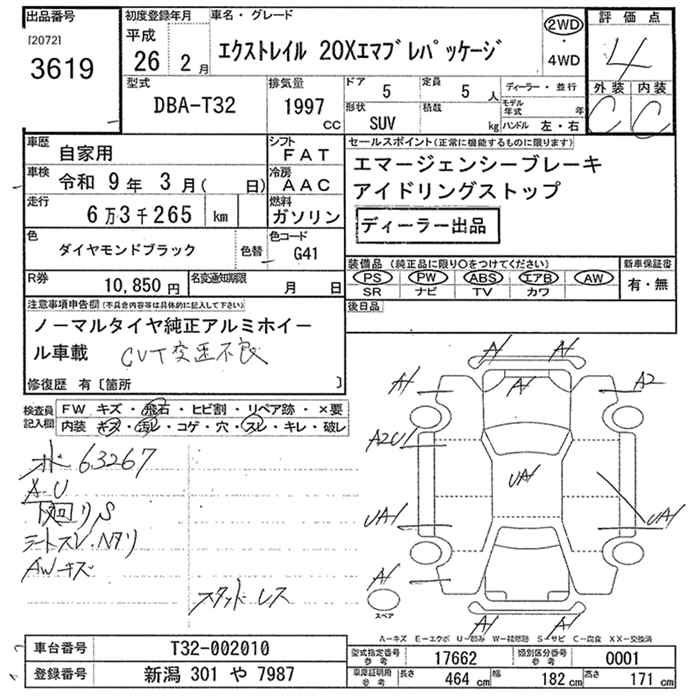 出品番号
[2072]
3619
初度登録年月
平成
26 年 2 月
車名・グレード
エクストレイル 20Xエマブレパッケージ
2WD
・
4WD
評価点
4
外装 内装
C C
型式
DBA-T32
排気量
1997
CC
ドア 5
定員 5 人
形状
SUV
積載
kg
ディーラー・並行
モデル年式 年
ハンドル 左・右
車歴
自家用
シフト
FAT
車検 令和 9年 3月( 日)
冷房
AAC
走行
6万3千265 km
燃料
ガソリン
色
ダイヤモンドブラック
色替
色コード
G41
R券
10,850円
名変通知期限
月 日
セールスポイント(正常に機能するものに限ります)
エマージェンシーブレーキ
アイドリングストップ
ディーラー出品
装備品 (純正品に限り○をつけてください)
PS PW ABS エアB AW
SR ナビ TV カワ
新車保証書
有・無
後日品
注意事項申告欄(不具合内容等は具体的に記入して下さい)
ノーマルタイヤ純正アルミホイー
ル車載 CVT交正不良
修復歴 有〔箇所 〕
検査員記入欄
FW キズ・飛石・ヒビ割・リペア跡・×要
内装 キズ・汚レ・コゲ・穴・スレ・キレ・破レ
63267
A.U
下回りS
シートスレ.
AWキズ
スタッドレス
A1 A1
A1 A1 A2
A2U1
UA1
UA1 UA1
A1
スペア
A1 A1
A－キズ E－エクボ U－凹み W－補修跡 S－サビ C－腐食 XX－交換済
車台番号
T32-002010
登録番号
新潟 301 や 7987
型式指定番号
参考
17662
類別区分番号
参考
0001
車庫証明用
参考
長さ 464 cm
幅 182 cm
高さ 171 cm